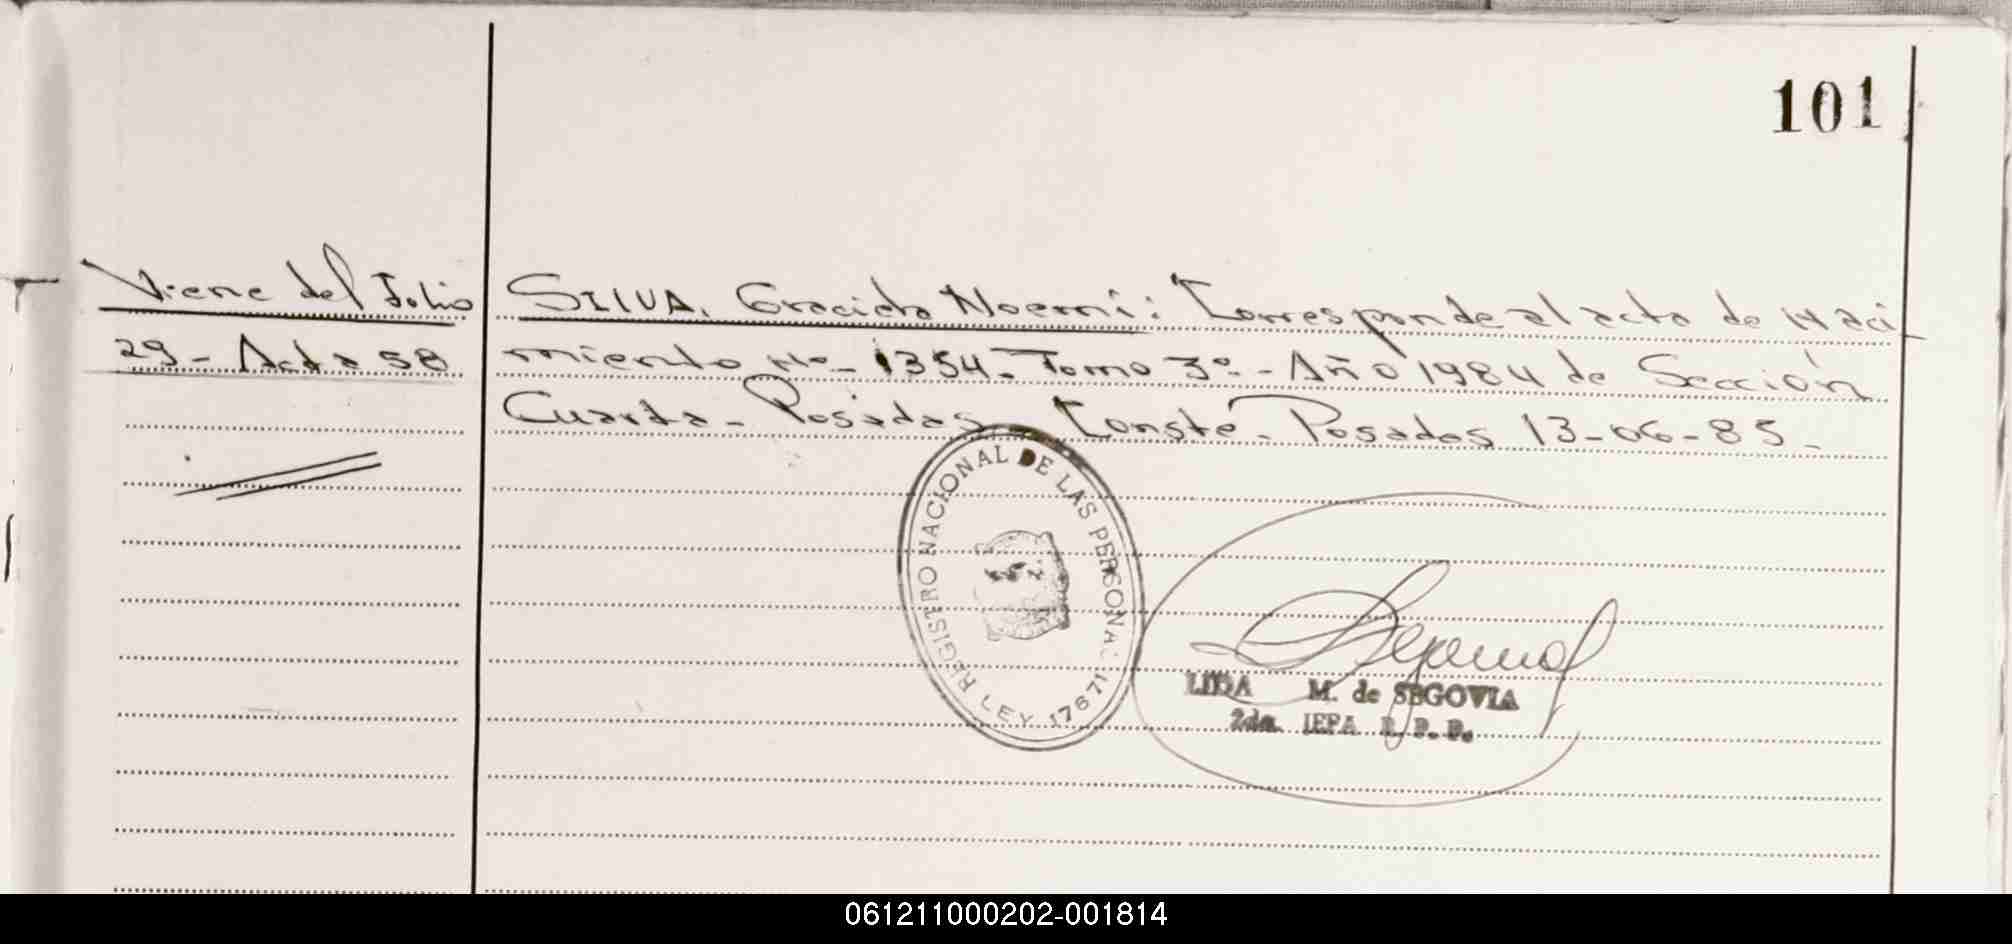 101
Viene del Folio
29- Acta 58
SILVA, Graciela Noemí: Corresponde al acta de Naci-
miento Nº- 1354- Tomo 3º- Año 1984 de Sección
Cuarta- Posadas- Conste- Posadas 13-06-85-
REGISTRO NACIONAL DE LAS PERSONAS
LEY 17671
LIDA M. de SEGOVIA
2da. JEFA R. P. P.
061211000202-001814